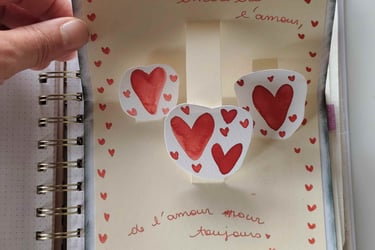 e l'amour,
de l'amour pour
toujours